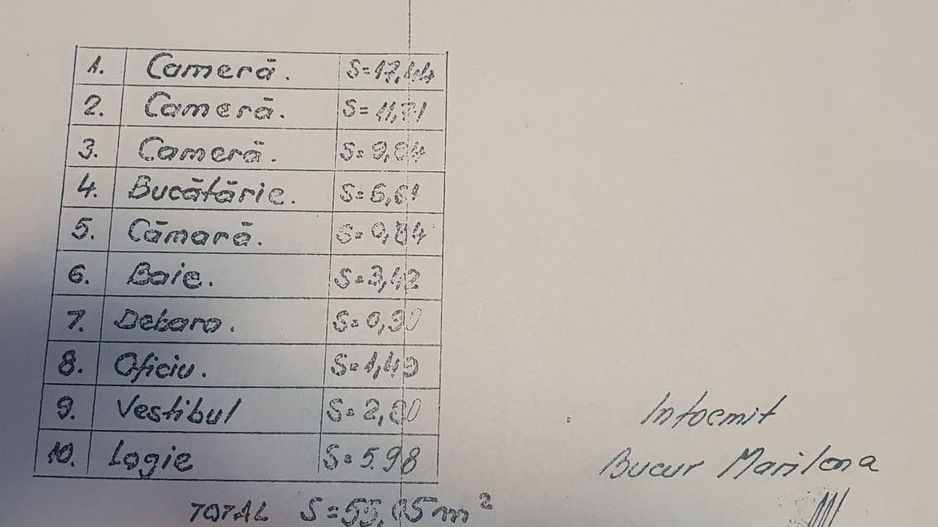 1. Cameră.
2. Cameră. S=11,71
3. Cameră.
4. Bucătărie. S=6,61
5. Cămară. S=0,84
6. Baie. S=3,42
7. Debara. S=0,90
8. Oficiu. S=1,49
9. Vestibul S=2,80
10. Logie S=5.98
TOTAL
Intocmit
Bucur Marilena